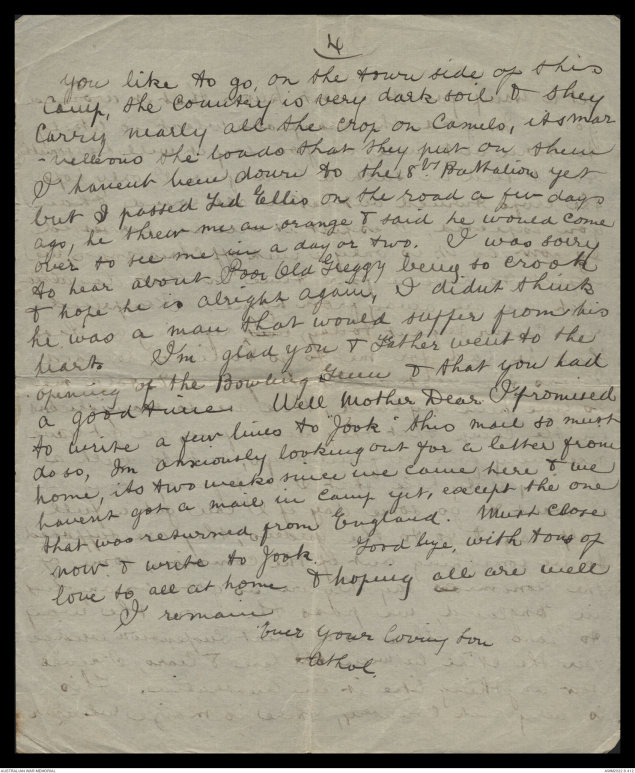 4
you like to go, on the town side of this
Camp, the Country is very dark soil & they
Carry nearly all the crop on Camels, its mar
-vellous the loads that they put on them
I havent been down to the 8th Battalion yet
but I passed Ted Ellis on the road a few days
ago, he threw me an orange & said he would come
over to see me in a day or two. I was sorry
to hear about Poor Old Greggy being so crook
& hope he is alright again, I didnt think
he was a man that would suffer from his
heart. I'm glad you & Father went to the
opening of the Bowling Green & that you had
a good time. Well Mother Dear I promised
to write a few lines to "Jook" this mail so must
do so, Im anxiously looking out for a letter from
home, its two weeks since we came here & we
havent got a mail in camp yet, except the one
that was returned from England. Must Close
now & write to Jook. Good bye, with tons of
love to all at home & hoping all are well
I remain
Ever Your loving Son
Athol.
AUSTRALIAN WAR MEMORIAL